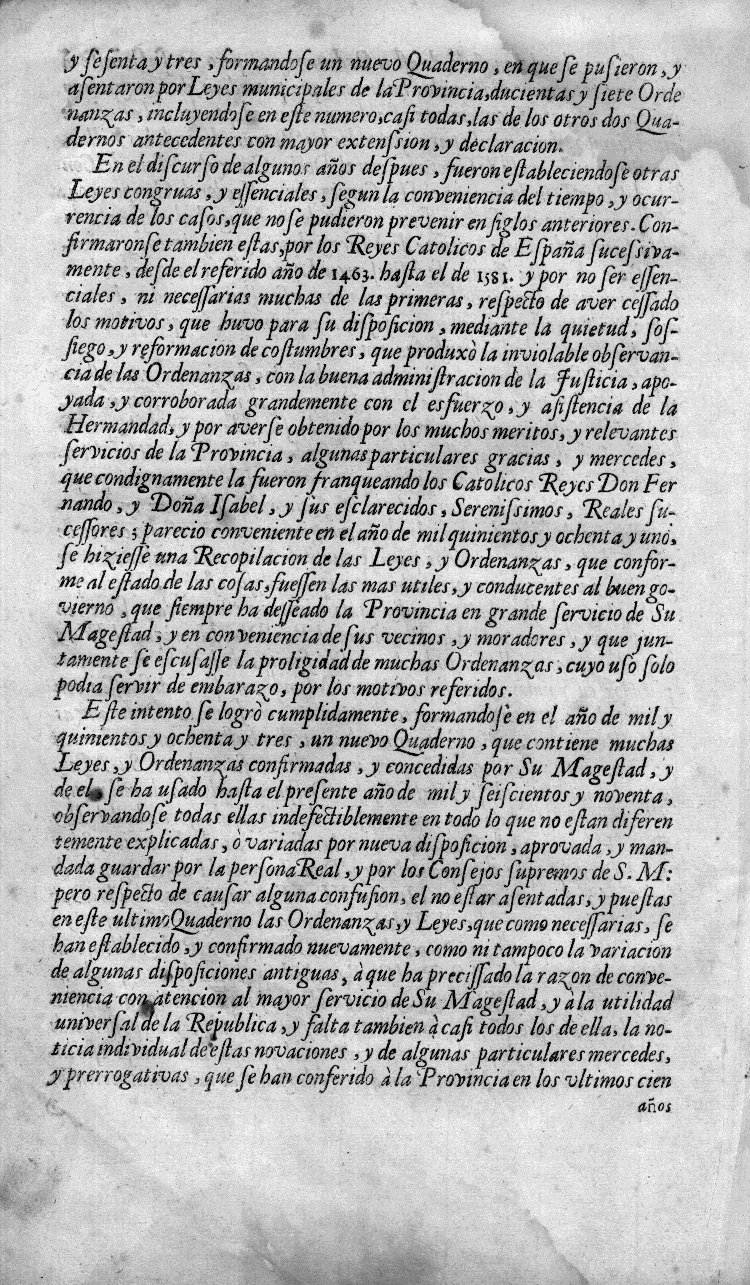 y sesenta y tres, formandose un nuevo Quaderno, en que se pusieron, y
asentaron por Leyes municipales de la Provincia, ducientas y siete Orde
nanzas, incluyendose en este numero, casi todas, las de los otros dos Qua-
dernos antecedentes con mayor extenssion, y declaracion.
En el discurso de algunos años despues, fueron estableciendose otras
Leyes congruas, y essenciales, segun la conveniencia del tiempo, y ocur-
rencia de los casos, que no se pudieron prevenir en siglos anteriores. Con-
firmaronse tambien estas, por los Reyes Catolicos de España sucessiva-
mente, desde el referido año de 1463. hasta el de 1581. y por no ser essen-
ciales, ni necessarias muchas de las primeras, respecto de aver cessado
los motivos, que huvo para su disposicion, mediante la quietud, sos-
siego, y reformacion de costumbres, que produxò la inviolable observan-
cia de las Ordenanzas, con la buena administracion de la Justicia, apo-
yada, y corroborada grandemente con el esfuerzo, y asistencia de la
Hermandad, y por averse obtenido por los muchos meritos, y relevantes
servicios de la Provincia, algunas particulares gracias, y mercedes,
que condignamente la fueron franqueando los Catolicos Reyes Don Fer
nando, y Doña Isabel, y sus esclarecidos, Serenissimos, Reales su-
cessores; parecio conveniente en el año de mil quinientos y ochenta y uno,
se hiziesse una Recopilacion de las Leyes, y Ordenanzas, que confor-
me al estado de las cosas, fuessen las mas utiles, y conducentes al buen go-
vierno, que siempre ha desseado la Provincia en grande servicio de Su
Magestad, y en conveniencia de sus vecinos, y moradores, y que jun-
tamente se escusasse la proligidad de muchas Ordenanzas, cuyo uso solo
podia servir de embarazo, por los motivos referidos.
Este intento se logrò cumplidamente, formandose en el año de mil y
quinientos y ochenta y tres, un nuevo Quaderno, que contiene muchas
Leyes, y Ordenanzas confirmadas, y concedidas por Su Magestad, y
de el se ha usado hasta el presente año de mil y seiscientos y noventa,
observandose todas ellas indefectiblemente en todo lo que no estan diferen
temente explicadas, ò variadas por nueva disposicion, aprovada, y man-
dada guardar por la persona Real, y por los Consejos supremos de S. M:
pero respecto de causar alguna confusion, el no estar asentadas, y puestas
en este ultimo Quaderno las Ordenanzas, y Leyes, que como necessarias, se
han establecido, y confirmado nuevamente, como ni tampoco la variacion
de algunas disposiciones antiguas, à que ha precissado la razon de conve-
niencia con atencion al mayor servicio de Su Magestad, y à la utilidad
universal de la Republica, y falta tambien à casi todos los de ella, la no-
ticia individual de estas novaciones, y de algunas particulares mercedes,
y prerrogativas, que se han conferido à la Provincia en los ultimos cien
años